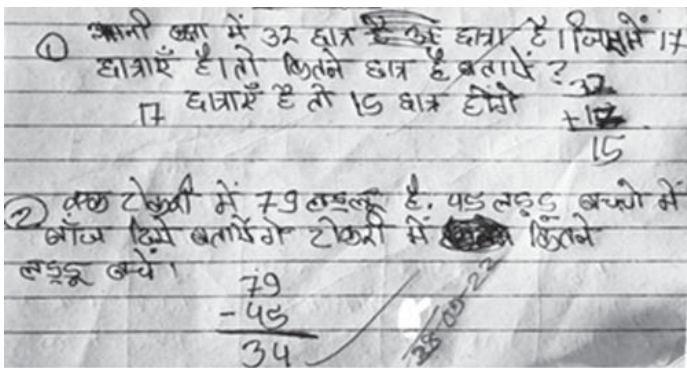 ① अपनी कक्षा में 32 छात्र है छात्रा है। जिसमें 17
छात्राएँ है। तो कितने छात्र है बतायें?
17 छात्राएँ है तो 15 छात्र होंगे
32
+17
15
② एक टोकरी में 79 लड्डू है. 45 लड्डू बच्चो में
बाँट दिये बतायेंगे टोकरी में कितने
लड्डू बचे।
79
- 45
34